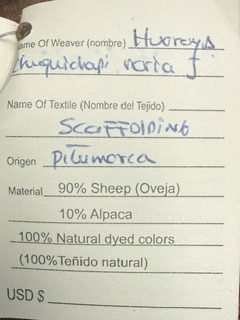 ame Of Weaver (nombre) Huaraya
chuquichapi maria J
Name Of Textile (Nombre del Tejido)
Scaffolding
Origen pitumarca
Material 90% Sheep (Oveja)
10% Alpaca
100% Natural dyed colors
(100%Teñido natural)
USD $